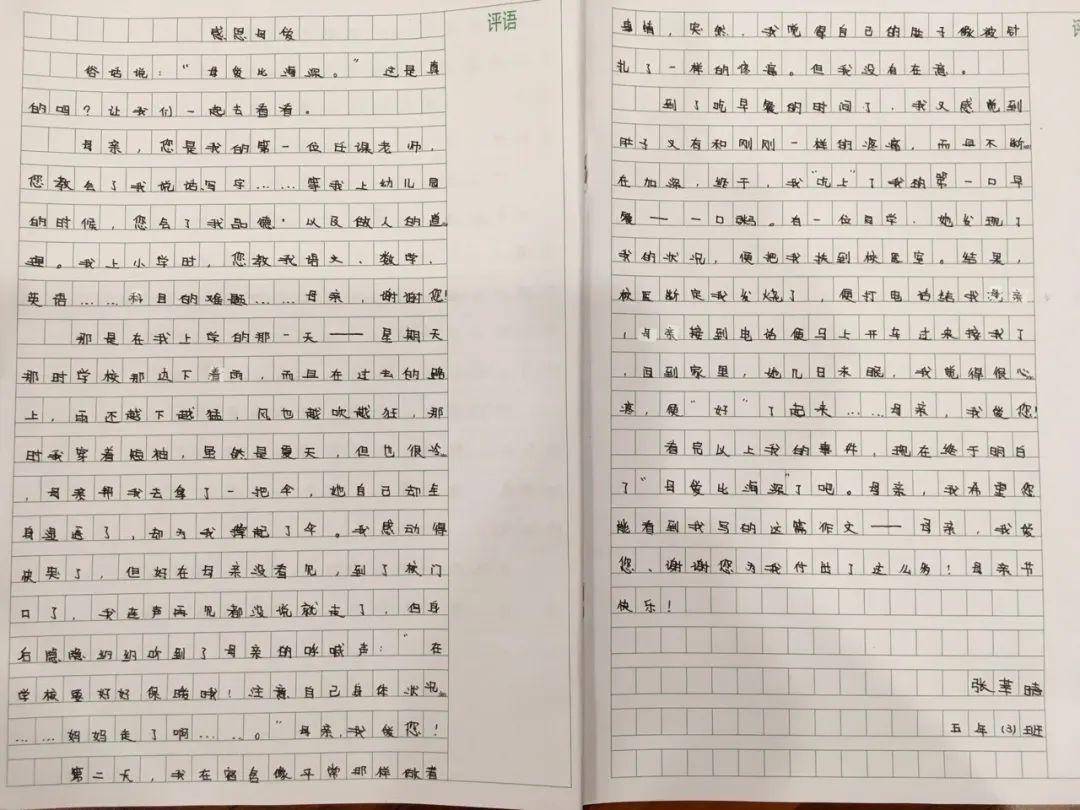 感恩母爱
评语
俗话说：“母爱比海深。”这是真
的吗？让我们一起去看看。
母亲，您是我的第一位任课老师，
您教会了我说话写字……等我上幼儿园
的时候，您会了我品德，以及做人的道
理。我上小学时，您教我语文、数学、
英语……科目的难题……母亲，谢谢您！
那是在我上学的那一天——星期天
那时学校那边下着雨，而且在过去的路
上，雨还越下越猛，风也越吹越狂，那
时我穿着短袖，虽然是夏天，但也很冷
，母亲帮我去拿了一把伞，她自己却全
身湿透了，却为我撑起了伞。我感动得
被哭了，但好在母亲没看见，到了校门
口了，我连声再见都没说就走了，但身
后隐隐约约听到了母亲的呼喊声：“在
学校要好好保暖哦！注意自己身体状况
……妈妈走了啊……。”母亲，我爱您！
第二天，我在宿舍像平常那样做着
事情，突然，我觉得自己的肚子像被针
扎了一样的疼痛。但我没有在意。
到了吃早餐的时间了，我又感觉到
肚子又有和刚刚一样的疼痛，而且不断
在加深，终于，我“吃上”了我的第一口早
餐——一口粥。有一位同学，她发现了
我的状况，便把我扶到校医室。结果，
校医断定我发烧了，便打电话给我母亲
，母亲接到电话便马上开车过来接我了
，回到家里，她几日未眠，我觉得很心
疼，便“好”了起来……母亲，我爱您！
看完以上我的事件，现在终于明白
了“母爱比海深”了吧。母亲，我希望您
能看到我写的这篇作文——母亲，我爱
您、谢谢您为我付出了这么多！母亲节
快乐！
张
五年（3）班